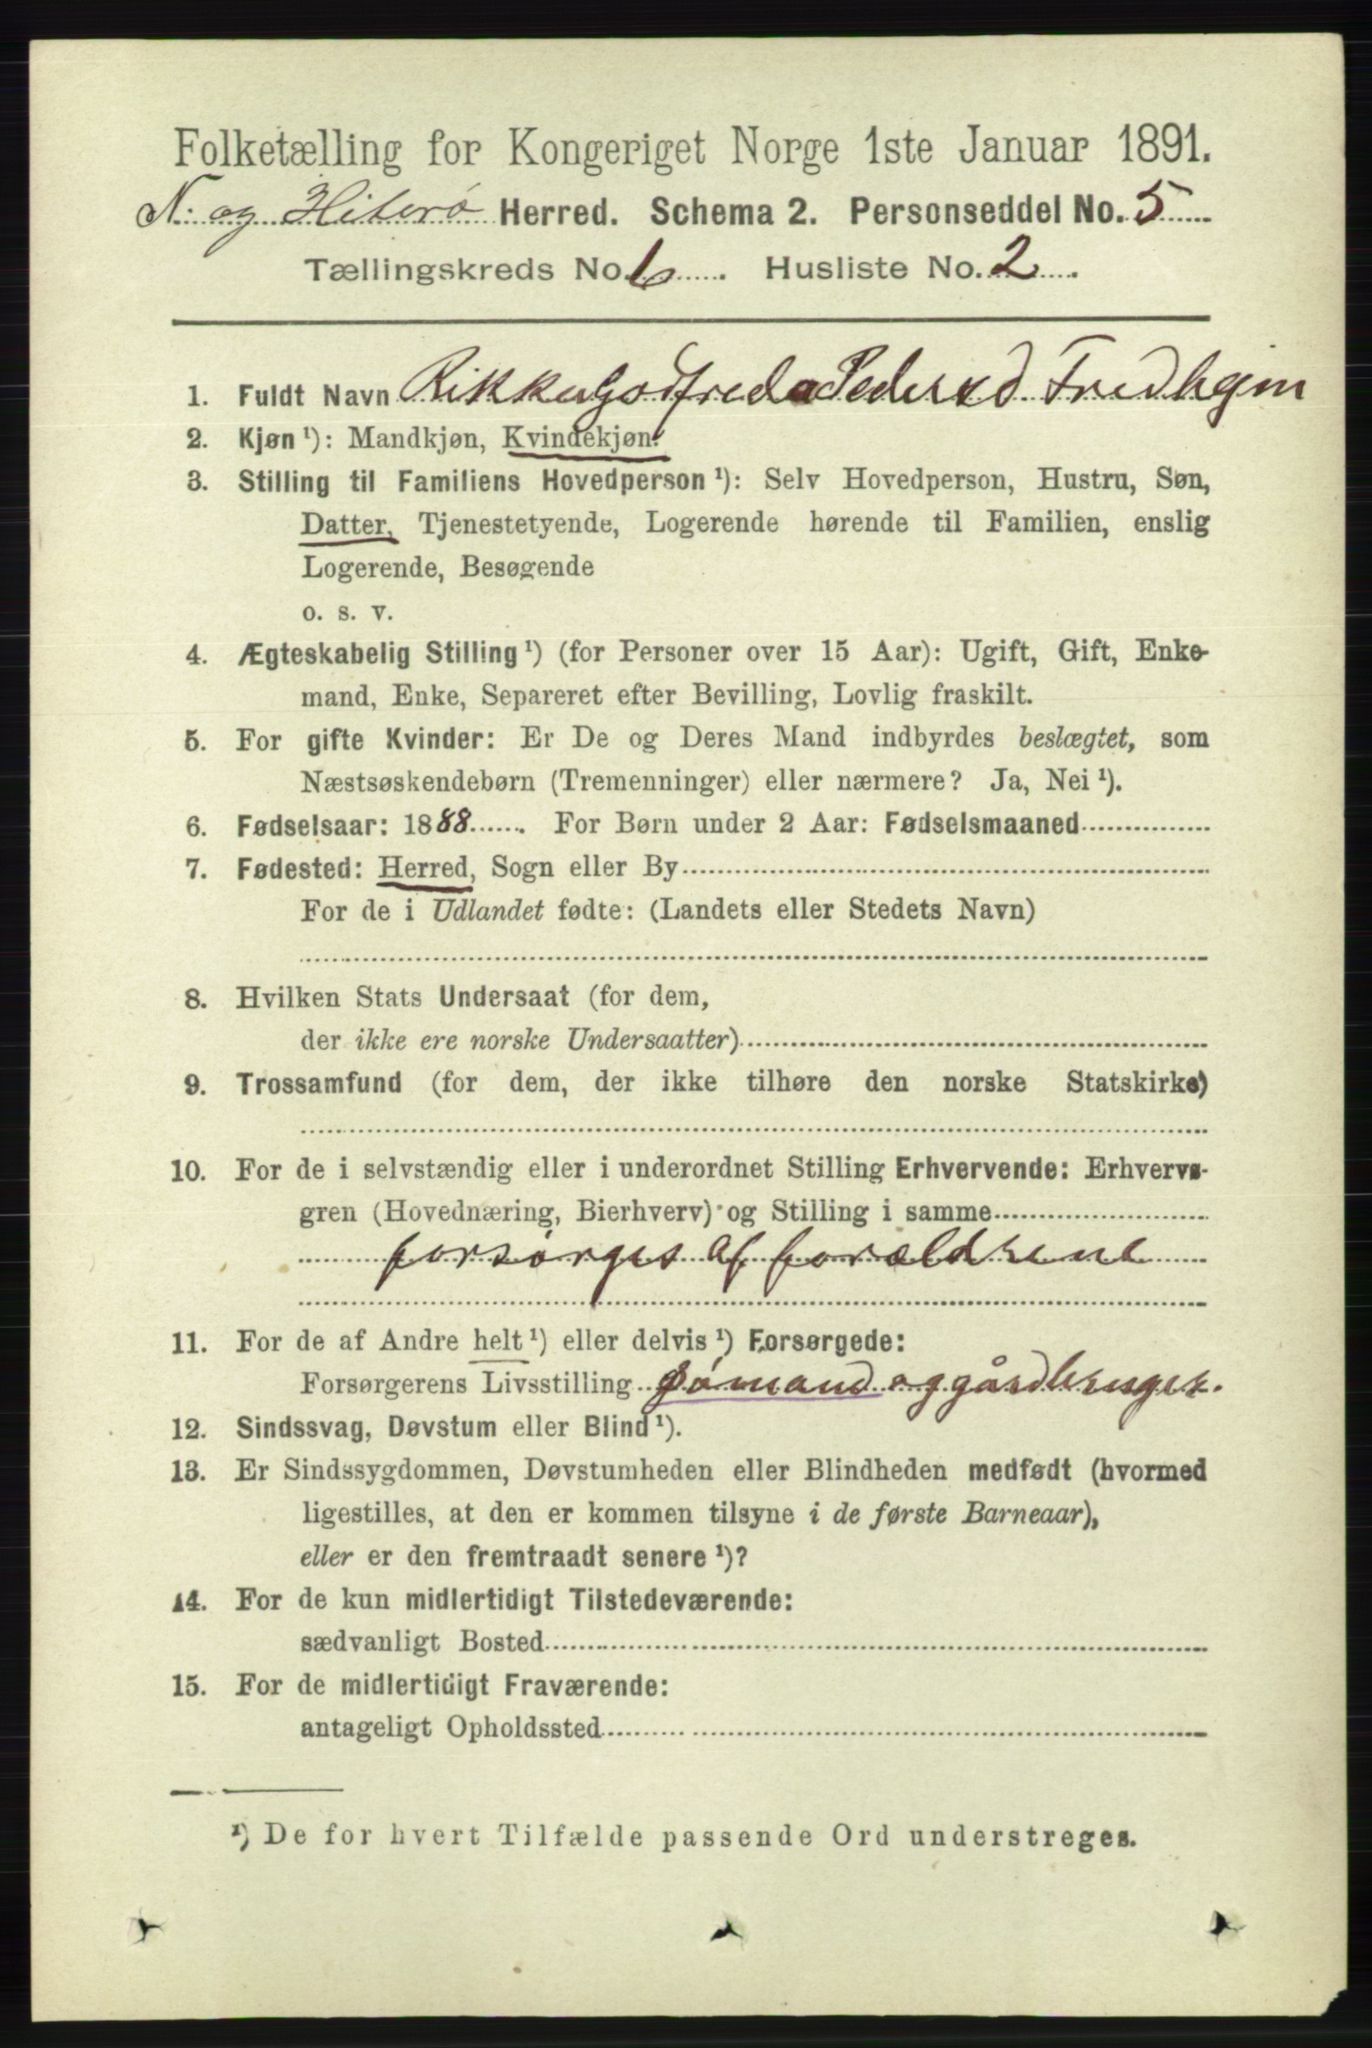 Folketælling for Kongeriget Norge 1ste Januar 1891.
N. og Hiterö Herred. Schema 2. Personseddel No. 5
Tællingskreds No. 6. Husliste No. 2.
1. Fuldt Navn Rikka Godfreda Pedersd Fredhejm
2. Kjøn ¹): Mandkjøn, Kvindekjøn.
3. Stilling til Familiens Hovedperson ¹): Selv Hovedperson, Hustru, Søn,
Datter, Tjenestetyende, Logerende hørende til Familien, enslig
Logerende, Besøgende
o. s. v.
4. Ægteskabelig Stilling ¹) (for Personer over 15 Aar): Ugift, Gift, Enke-
mand, Enke, Separeret efter Bevilling, Lovlig fraskilt.
5. For gifte Kvinder: Er De og Deres Mand indbyrdes beslægtet, som
Næstsøskendebørn (Tremenninger) eller nærmere? Ja, Nei ¹).
6. Fødselsaar: 1888. For Børn under 2 Aar: Fødselsmaaned
7. Fødested: Herred, Sogn eller By
For de i Udlandet fødte: (Landets eller Stedets Navn)
8. Hvilken Stats Undersaat (for dem,
der ikke ere norske Undersaatter)
9. Trossamfund (for dem, der ikke tilhøre den norske Statskirke)
10. For de i selvstændig eller i underordnet Stilling Erhvervende: Erhvervs-
gren (Hovednæring, Bierhverv) og Stilling i samme
forsörges af forældrene
11. For de af Andre helt ¹) eller delvis ¹) Forsørgede:
Forsørgerens Livsstilling Sömand og gårdbruger.
12. Sindssvag, Døvstum eller Blind ¹).
13. Er Sindssygdommen, Døvstumheden eller Blindheden medfødt (hvormed
ligestilles, at den er kommen tilsyne i de første Barneaar),
eller er den fremtraadt senere ¹)?
14. For de kun midlertidigt Tilstedeværende:
sædvanligt Bosted
15. For de midlertidigt Fraværende:
antageligt Opholdssted
¹) De for hvert Tilfælde passende Ord understreges.